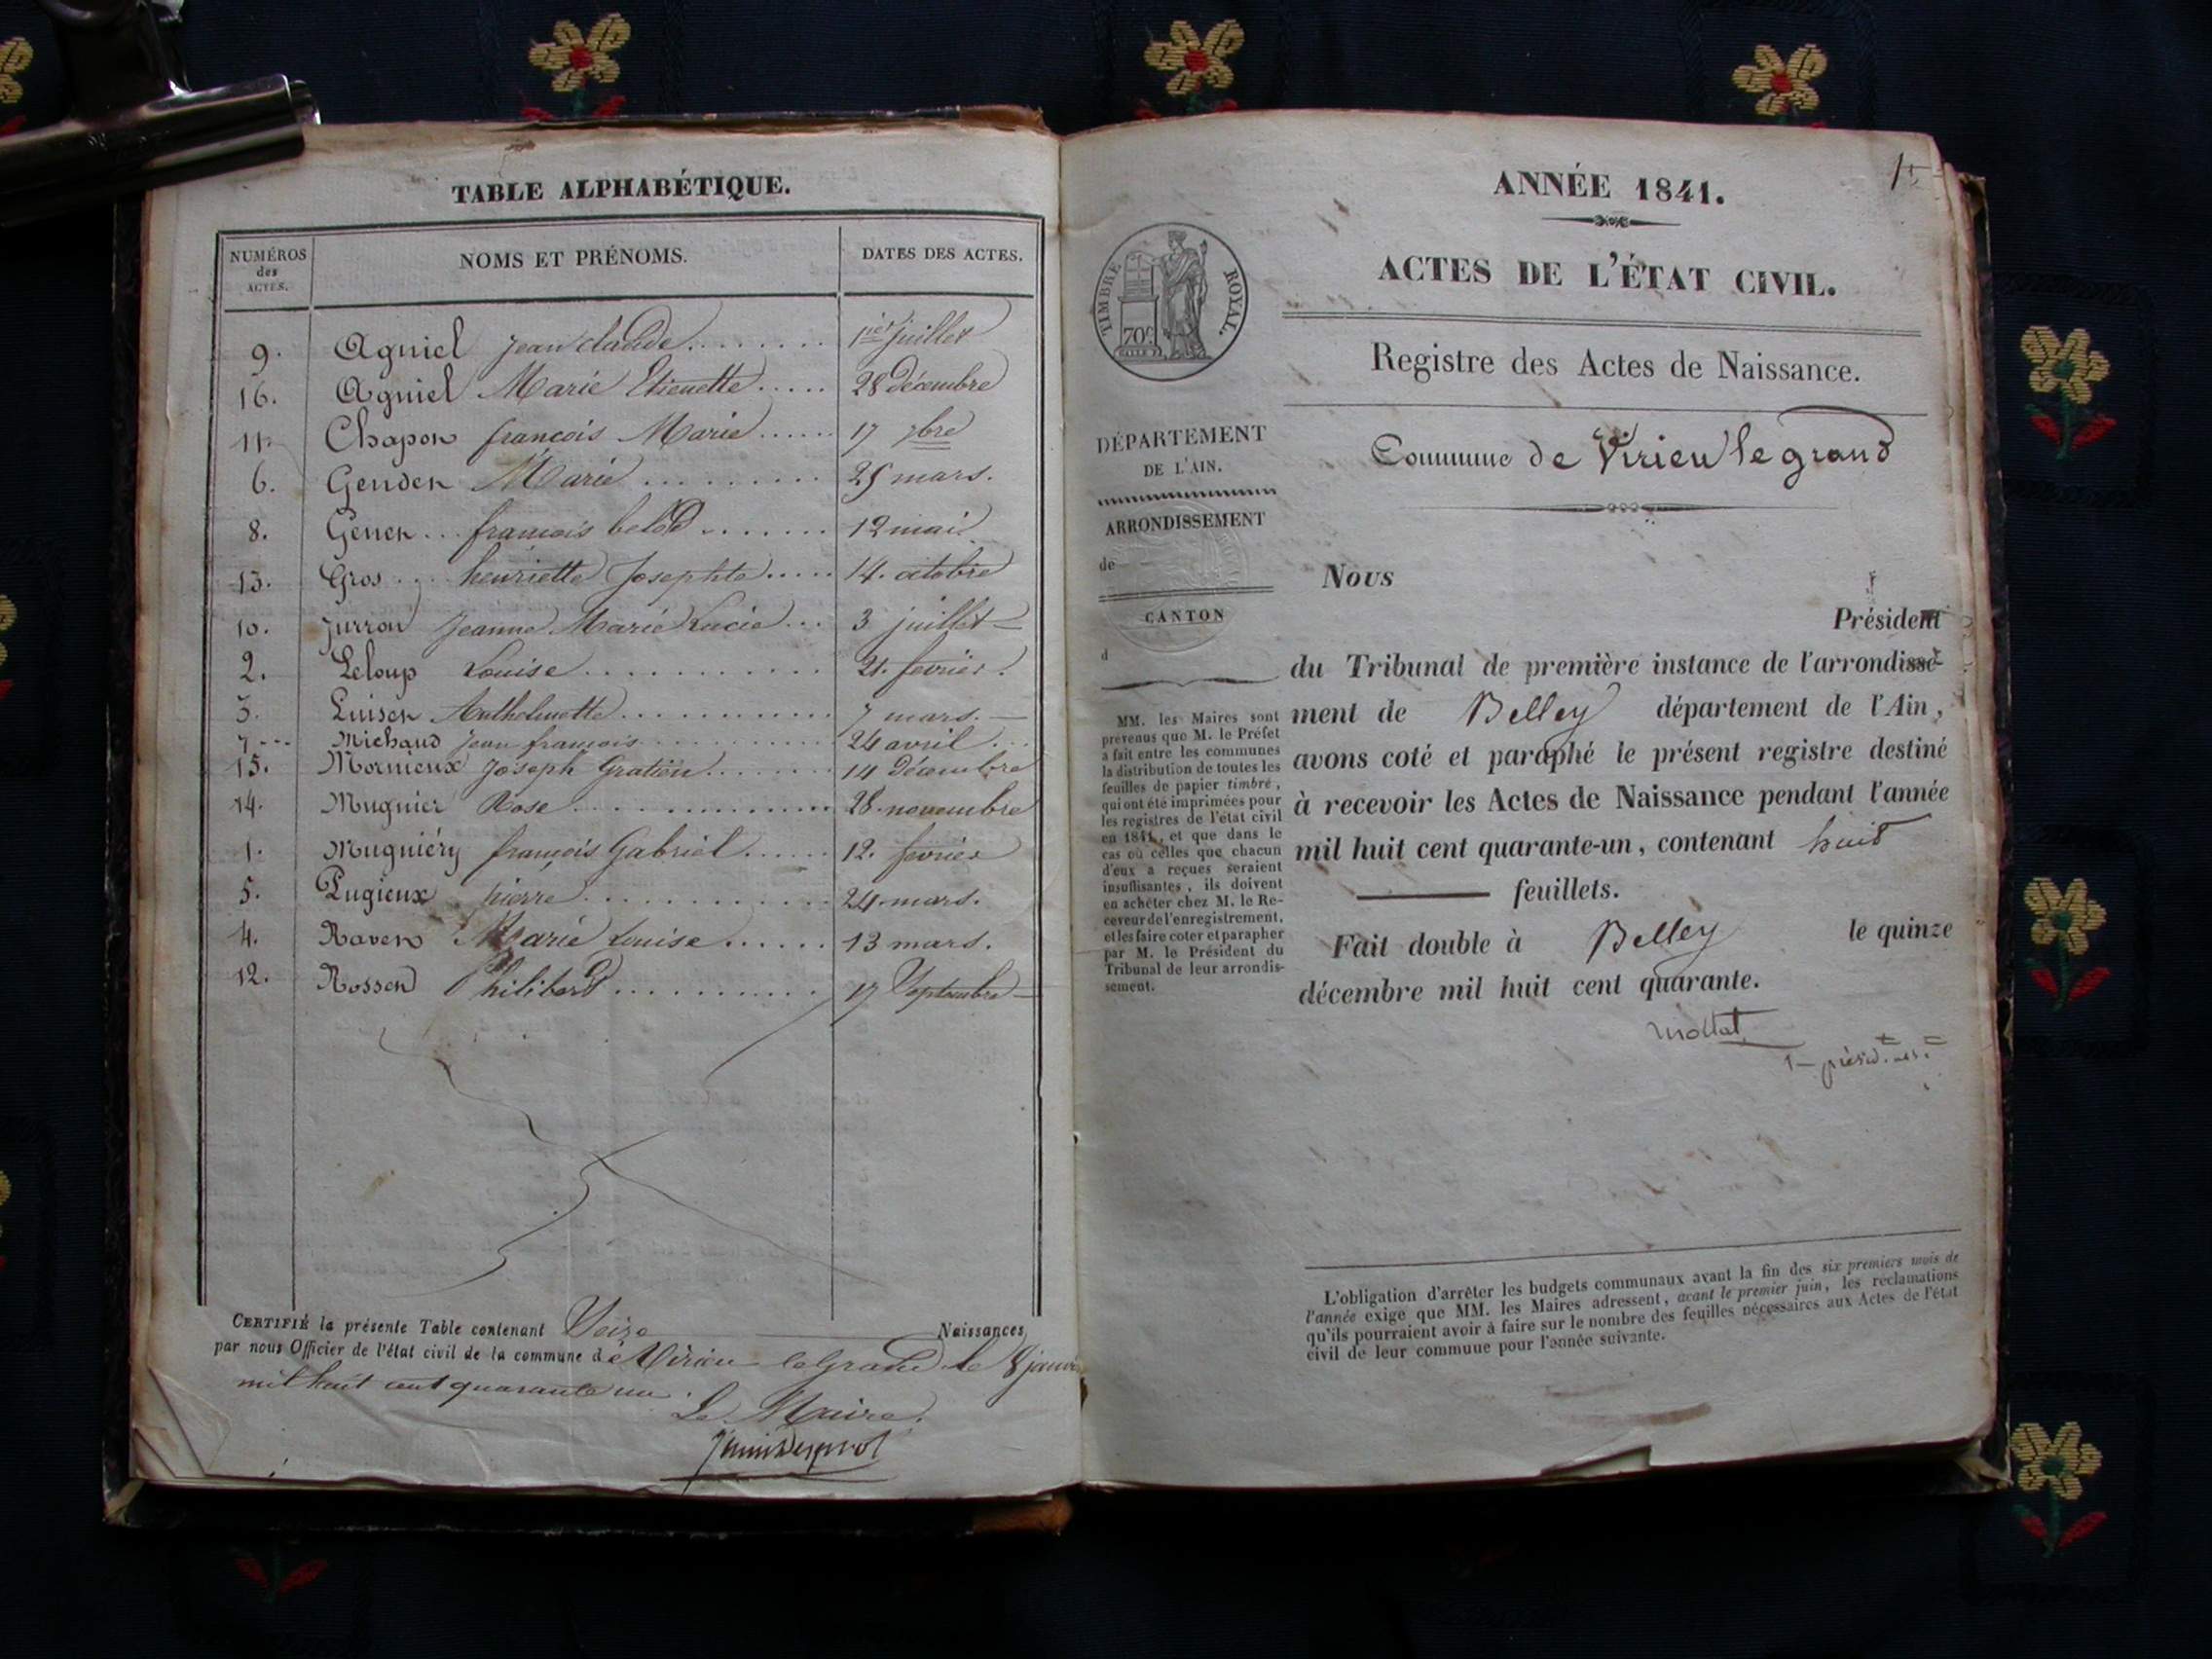 TABLE ALPHABÉTIQUE.
NUMÉROS des ACTES. NOMS ET PRÉNOMS. DATES DES ACTES.
9. Agniel Jean claude........ 1ier juillet
16. Agniel Marie Etiennette..... 28 décembre
11. Chapon françois Marie...... 17 7bre
6. Marie......... 25 mars.
8. françois ....... 12 mai.
13. Gros.... henriette Josephte..... 14. octobre
10. Jurron Jeanne Marie Lucie... 3 juillet
2. Leloup Louise........... 21. fevrier.
3. Antholmette............ 7 mars.
7 --- Michaud Jean françois............ 24 avril...
15. Mornieux Joseph Gratien....... 14 décembre
14. Mugnier Rose.............. 28. novembre
1. Mugniéry françois Gabriel...... 12. fevrier
5. Pugieux pierre............ 24. mars.
4. Marie Louise...... 13 mars.
12. Philibert........... 17 Septembre
CERTIFIÉ la présente Table contenant Seize Naissances,
par nous Officier de l'état civil de la commune de Virieu le Grand le 8 janvi
mil huit cent quarante un.
Le Maire.
ANNÉE 1841.
ACTES DE L'ÉTAT CIVIL.
TIMBRE ROYAL.
70c.
Registre des Actes de Naissance.
Commune de Virieu le grand
DÉPARTEMENT
DE L'AIN.
ARRONDISSEMENT
de
CANTON
d
MM. les Maires sont
prévenus que M. le Préfet
a fait entre les communes
la distribution de toutes les
feuilles de papier timbré,
qui ont été imprimées pour
les registres de l'état civil
en 1841, et que dans le
cas où celles que chacun
d'eux a reçues seraient
insuffisantes, ils doivent
en acheter chez M. le Re-
ceveur de l'enregistrement,
et les faire coter et parapher
par M. le Président du
Tribunal de leur arrondis-
sement.
Nous
Président
du Tribunal de première instance de l'arrondisse-
ment de Belley département de l'Ain,
avons coté et paraphé le présent registre destiné
à recevoir les Actes de Naissance pendant l'année
mil huit cent quarante-un, contenant huit
feuillets.
Fait double à Belley le quinze
décembre mil huit cent quarante.
L'obligation d'arrêter les budgets communaux avant la fin des six premiers mois de
l'année exige que MM. les Maires adressent, avant le premier juin, les réclamations
qu'ils pourraient avoir à faire sur le nombre des feuilles nécessaires aux Actes de l'état
civil de leur commune pour l'année suivante.